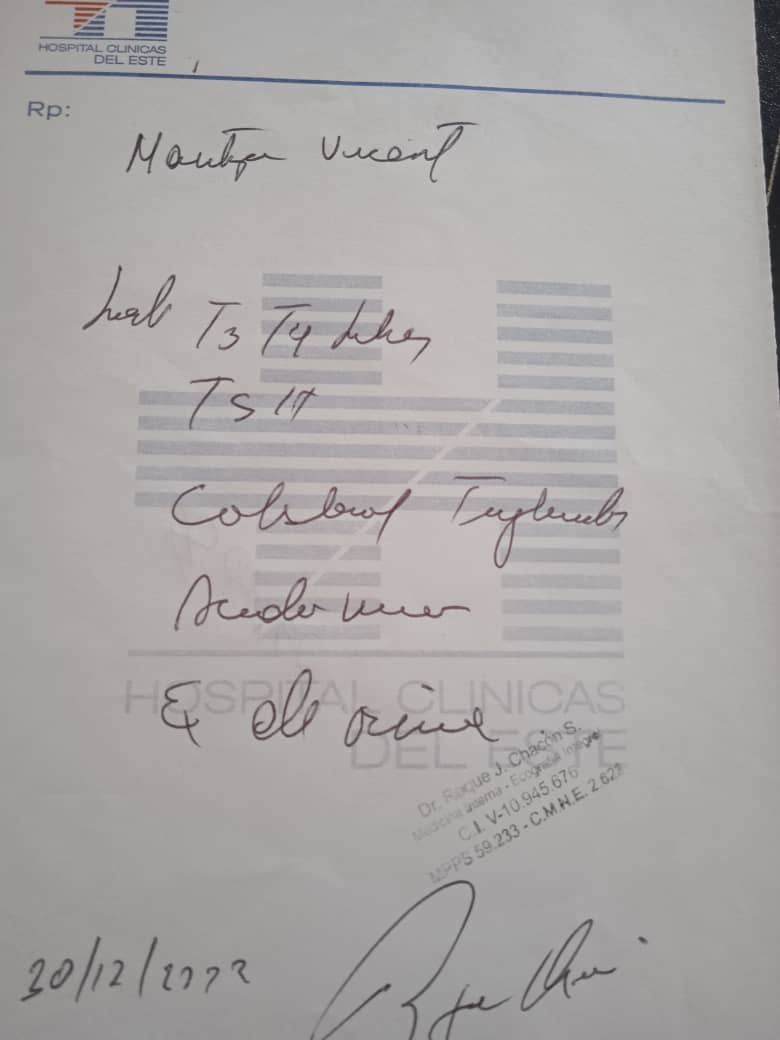 HOSPITAL CLINICAS
DEL ESTE
Rp:
Lab T3 T4 Libres
TSH
Colesterol Trigliceridos
Acido urico
Ex de orina
HOSPITAL CLINICAS
DEL ESTE
Dr. Roque J. Chacón S.
Medicina Interna - Ecografía Integral
C.I. V-10.945.676
MPPS 59.233 - C.M.N.E. 2.622
30/12/2022